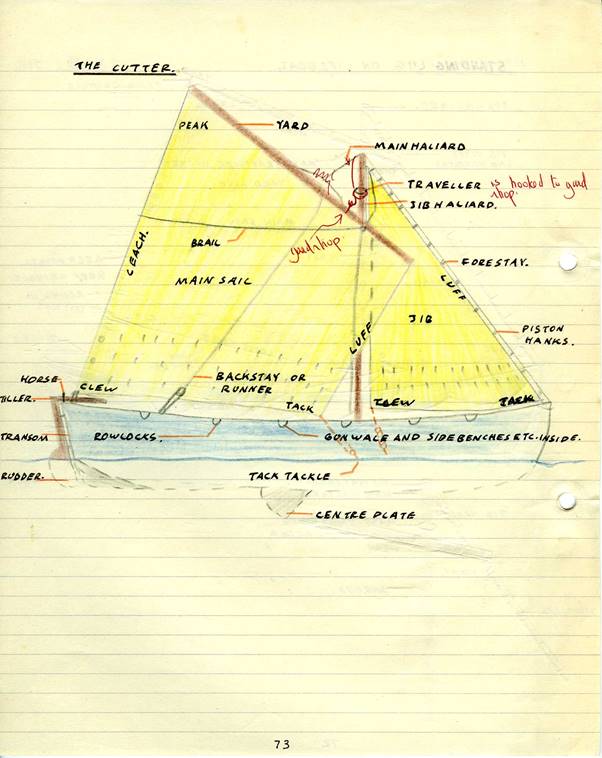 THE CUTTER.
PEAK
YARD
MAIN HALIARD
TRAVELLER is hooked to
JIB HALIARD.
LEACH.
BRAIL
FORESTAY.
LUFF
MAIN SAIL
JIB
LUFF
PISTON
HANKS.
HORSE
CLEW
BACKSTAY OR
RUNNER
TILLER.
TACK
CLEW
TACK
TRANSOM
ROWLOCKS.
GUNWALE AND SIDEBENCHES ETC. INSIDE.
RUDDER.
TACK TACKLE
CENTRE PLATE
73